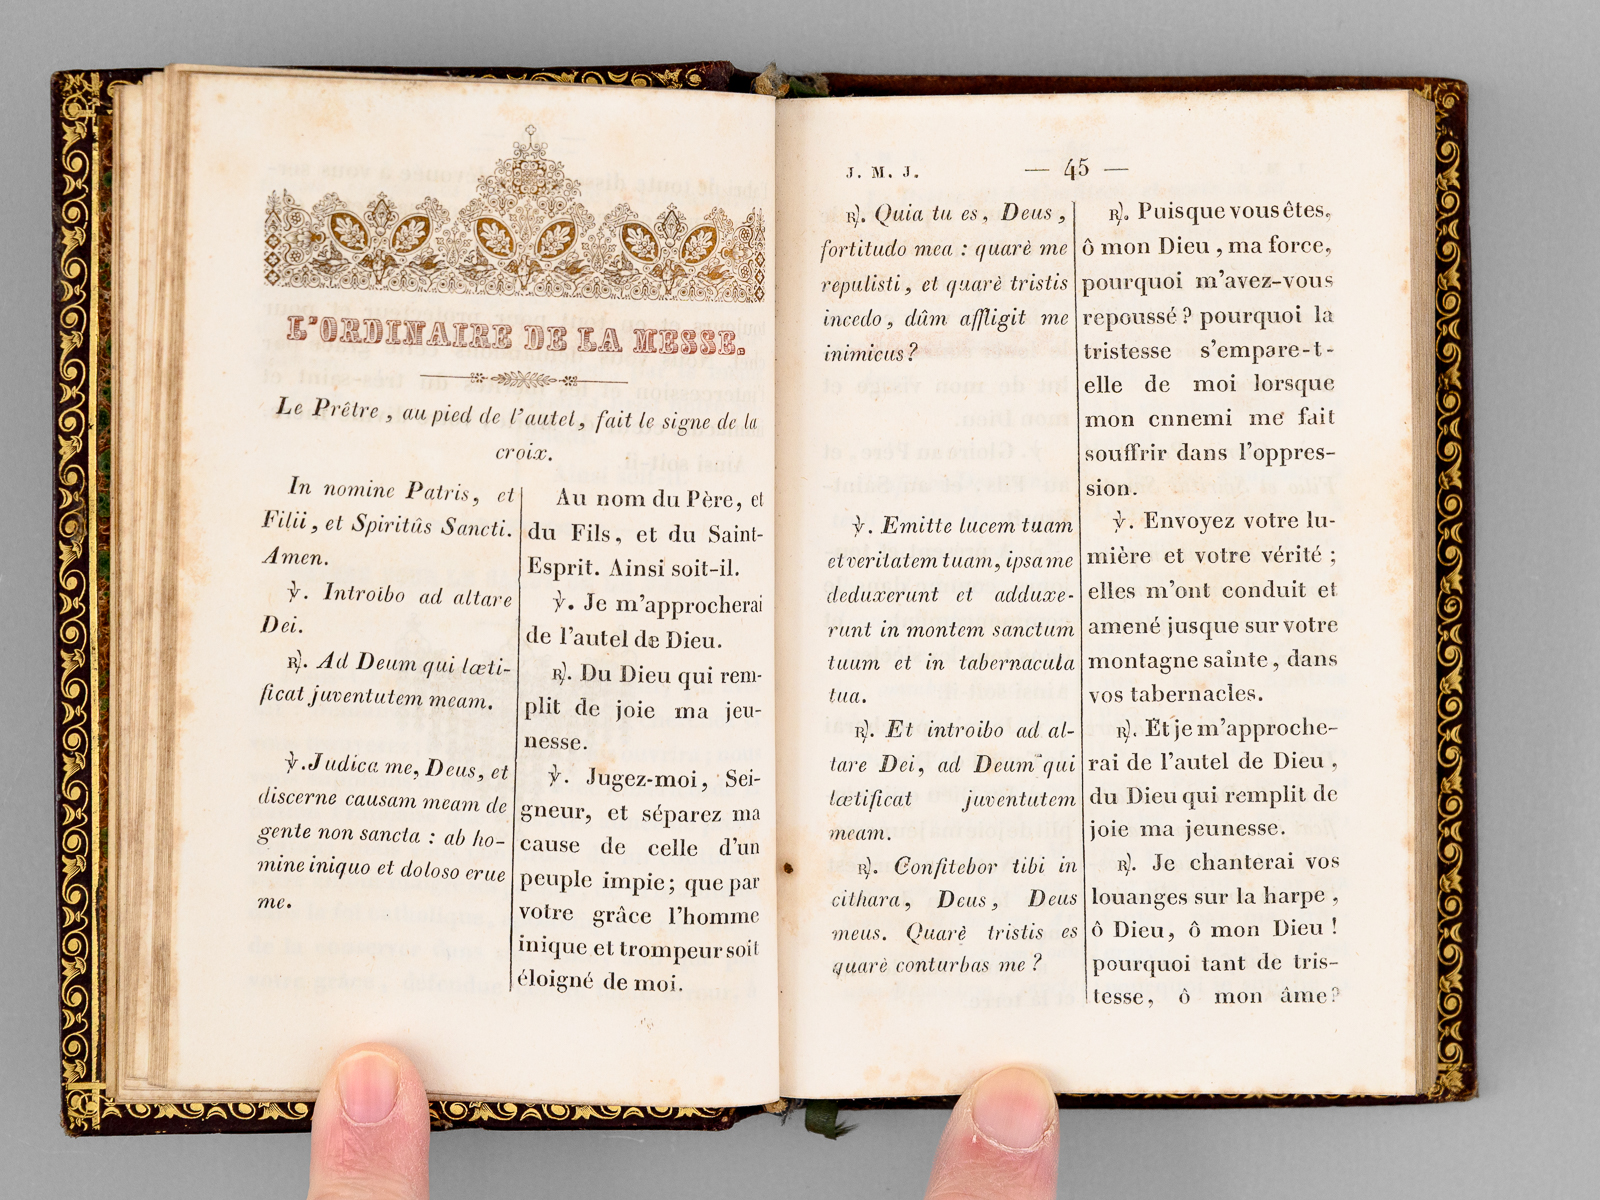 L'ORDINAIRE DE LA MESSE.
Le Prêtre, au pied de l'autel, fait le signe de la
croix.
In nomine Patris, et
Filii, et Spiritûs Sancti.
Amen.
℣. Introibo ad altare
Dei.
℟. Ad Deum qui lœti-
ficat juventutem meam.
℣. Judica me, Deus, et
discerne causam meam de
gente non sancta : ab ho-
mine iniquo et doloso erue
me.
Au nom du Père, et
du Fils, et du Saint-
Esprit. Ainsi soit-il.
℣. Je m'approcherai
de l'autel de Dieu.
℟. Du Dieu qui rem-
plit de joie ma jeu-
nesse.
℣. Jugez-moi, Sei-
gneur, et séparez ma
cause de celle d'un
peuple impie; que par
votre grâce l'homme
inique et trompeur soit
éloigné de moi.
J. M. J. — 45 —
℟. Quia tu es, Deus,
fortitudo mea : quarè me
repulisti, et quarè tristis
incedo, dûm affligit me
inimicus?
℣. Emitte lucem tuam
et veritatem tuam, ipsa me
deduxerunt et adduxe-
runt in montem sanctum
tuum et in tabernacula
tua.
℟. Et introibo ad al-
tare Dei, ad Deum qui
lœtificat juventutem
meam.
℟. Confitebor tibi in
cithara, Deus, Deus
meus. Quarè tristis es
quarè conturbas me?
℟. Puisque vous êtes,
ô mon Dieu, ma force,
pourquoi m'avez-vous
repoussé? pourquoi la
tristesse s'empare-t-
elle de moi lorsque
mon cnnemi me fait
souffrir dans l'oppres-
sion.
℣. Envoyez votre lu-
mière et votre vérité ;
elles m'ont conduit et
amené jusque sur votre
montagne sainte, dans
vos tabernacles.
℟. Et je m'approche-
rai de l'autel de Dieu,
du Dieu qui remplit de
joie ma jeunesse.
℟. Je chanterai vos
louanges sur la harpe,
ô Dieu, ô mon Dieu !
pourquoi tant de tris-
tesse, ô mon âme?